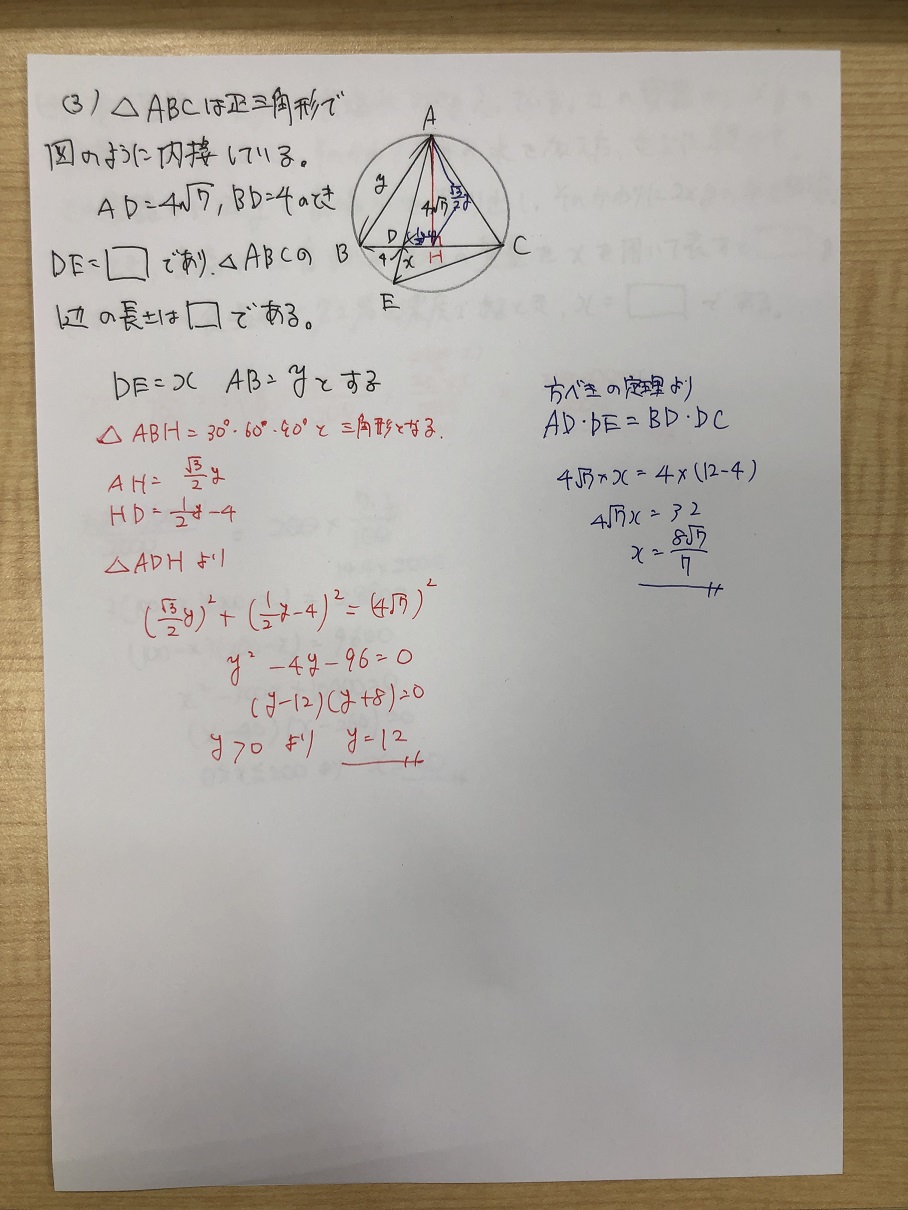 (3) △ABCは正三角形で
図のように内接している。
AD=4√7, BD=4のとき
DE=□であり、△ABCの
1辺の長さは□である。
A
y
4√7
√3/2 y
B
D
1/2y-4
H
C
4
x
E
DE=x AB=yとする
△ABH=30°・60°・90°と三角形となる.
AH=√3/2 y
HD=1/2y-4
△ADHより
(√3/2 y)²+(1/2y-4)²=(4√7)²
y²-4y-96=0
(y-12)(y+8)=0
y>0 より y=12
方べきの定理より
AD・DE=BD・DC
4√7×x=4×(12-4)
4√7x=32
x=8√7/7